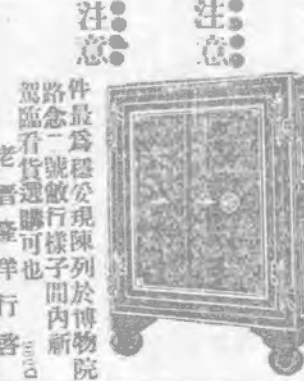 注意
注意
件最爲穩妥現陳列於博物院
路念一號敝行樣子間内祈
駕臨看貨選購可也
老晋隆洋行啓